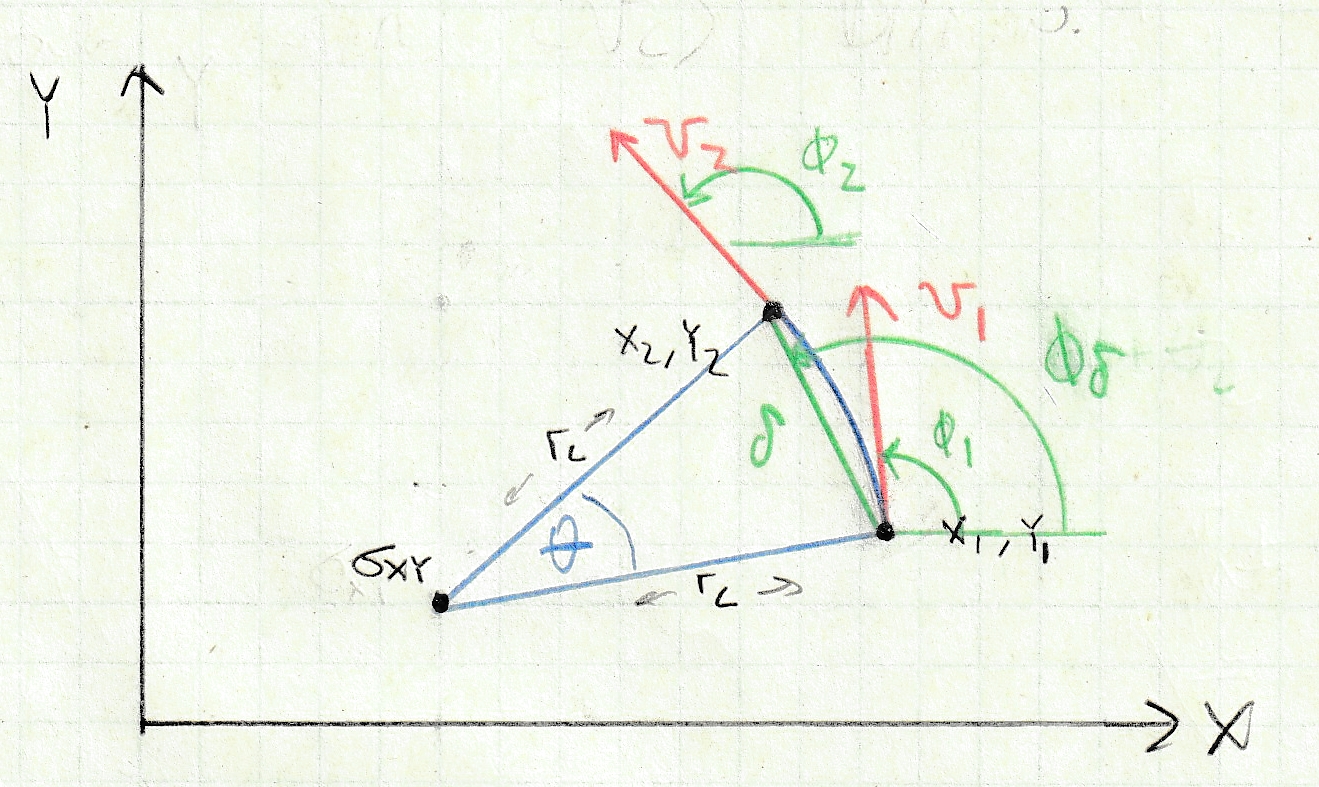 Y
v₂
ϕ₂
v₁
X₂, Y₂
ϕδ
δ
ϕ₁
r_c
X₁, Y₁
θ
σxy
r_c
X